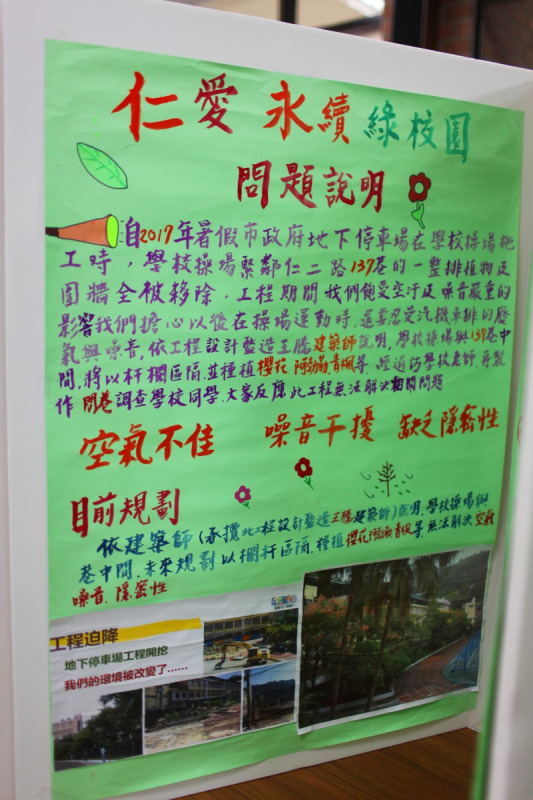 仁愛 永續 綠校園
問題說明
自2017年暑假市政府地下停車場在學校操場施
工時，學校操場緊鄰仁二路137巷的一整排植物及
圍牆全被移除．工程期間我們飽受空汙及噪音嚴重的
影響我們擔心以後在操場運動時，還要忍受汽機車排的廢
氣與噪音，依工程設計監造王騰建築師說明，學校操場與137巷中
間，將以杆欄區隔，並種植櫻花、阿勃勒、青楓等，經過訪學校老師，再製
作 問卷調查學校同學，大家反應此工程無法解決相關問題
空氣不佳 噪音干擾 缺乏隱密性
目前規劃
依建築師（承攬此工程設計監造王騰建築師）說明，學校操場與
巷中間，未來規劃以欄杆區隔，種植櫻花阿勃勒青楓等無法解決空氣
噪音、隱密性
工程迫降
地下停車場工程開挖
我們的環境被改變了......